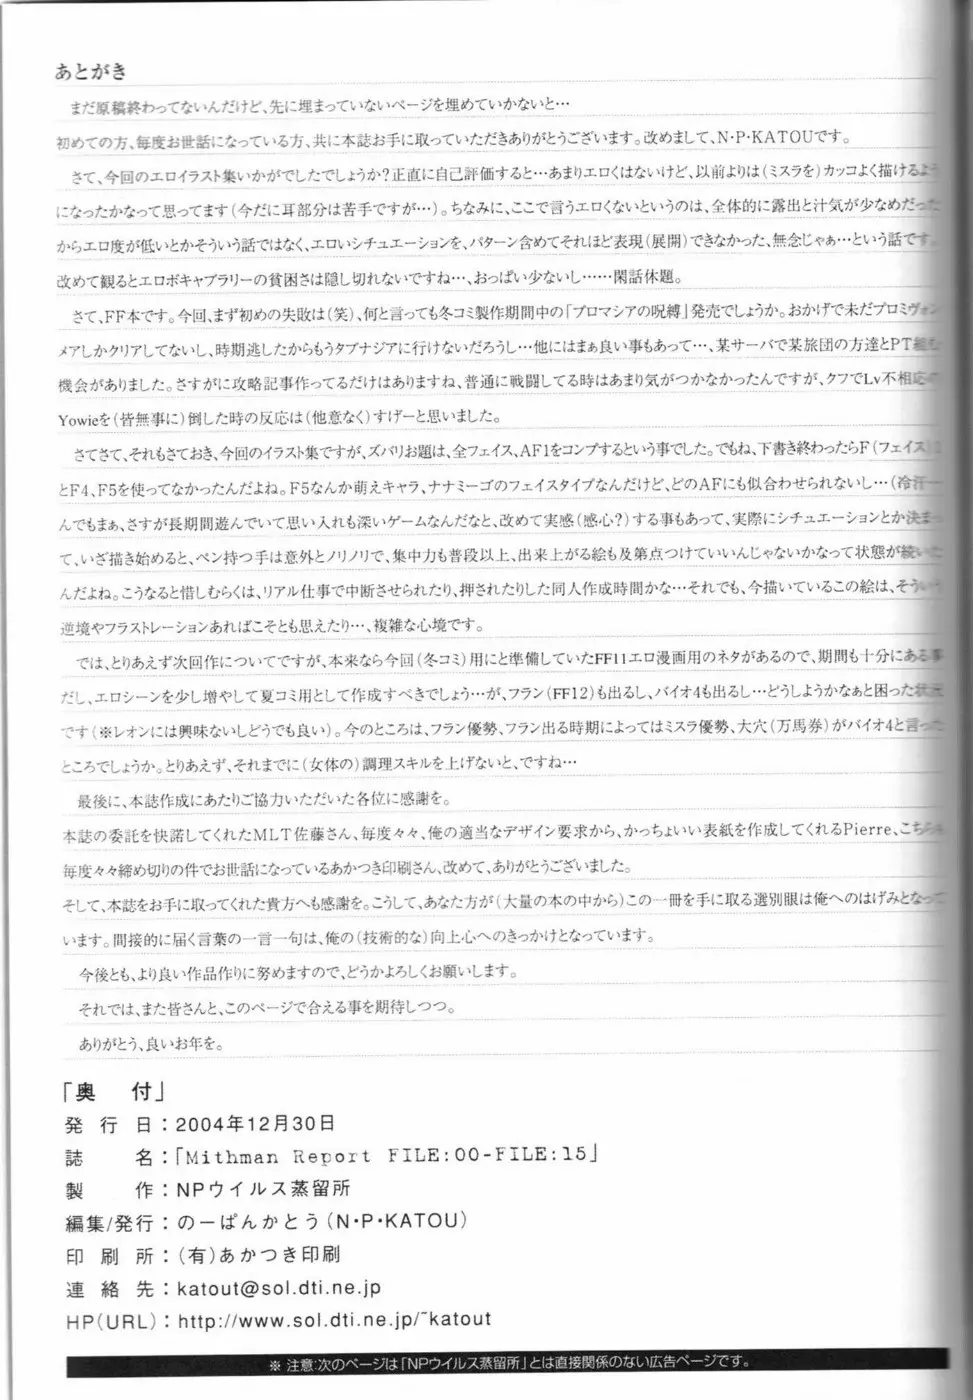 あとがき
まだ原稿終わってないんだけど、先に埋まっていないページを埋めていかないと…
初めての方、毎度お世話になっている方、共に本誌お手に取っていただきありがとうございます。改めまして、N・P・KATOUです。
さて、今回のエロイラスト集いかがでしたでしょうか?正直に自己評価すると…あまりエロくはないけど、以前よりは(ミスラを)カッコよく描けるよう
になったかなって思ってます(今だに耳部分は苦手ですが…)。ちなみに、ここで言うエロくないというのは、全体的に露出と汁気が少なめだった
からエロ度が低いとかそういう話ではなく、エロいシチュエーションを、パターン含めてそれほど表現(展開)できなかった、無念じゃぁ…という話です。
改めて観るとエロボキャブラリーの貧困さは隠し切れないですね…、おっぱい少ないし……閑話休題。
さて、FF本です。今回、まず初めの失敗は(笑)、何と言っても冬コミ製作期間中の「プロマシアの呪縛」発売でしょうか。おかげで未だプロミヴォン
メアしかクリアしてないし、時期逃したからもうタブナジアに行けないだろうし…他にはまぁ良い事もあって…、某サーバで某旅団の方達とPT組む
機会がありました。さすがに攻略記事作ってるだけはありますね、普通に戦闘してる時はあまり気がつかなかったんですが、クフでLv不相応の
Yowieを(皆無事に)倒した時の反応は(他意なく)すげーと思いました。
さてさて、それもさておき、今回のイラスト集ですが、ズバリお題は、全フェイス、AF1をコンプするという事でした。でもね、下書き終わったらF(フェイス)
とF4、F5を使ってなかったんだよね。F5なんか萌えキャラ、ナナミーゴのフェイスタイプなんだけど、どのAFにも似合わせられないし…(冷汗
んでもまぁ、さすが長期間遊んでいて思い入れも深いゲームなんだなと、改めて実感(感心?)する事もあって、実際にシチュエーションとか決まっ
て、いざ描き始めると、ペン持つ手は意外とノリノリで、集中力も普段以上、出来上がる絵も及第点つけていいんじゃないかなって状態が続いた
んだよね。こうなると惜しむらくは、リアル仕事で中断させられたり、押されたりした同人作成時間かな…それでも、今描いているこの絵は、そういう
逆境やフラストレーションあればこそとも思えたり…、複雑な心境です。
では、とりあえず次回作についてですが、本来なら今回(冬コミ)用にと準備していたFF11エロ漫画用のネタがあるので、期間も十分にある事
だし、エロシーンを少し増やして夏コミ用として作成すべきでしょう…が、フラン(FF12)も出るし、バイオ4も出るし…どうしようかなぁと困った状況
です(※レオンには興味ないしどうでも良い)。今のところは、フラン優勢、フラン出る時期によってはミスラ優勢、大穴(万馬券)がバイオ4と言った
ところでしょうか。とりあえず、それまでに(女体の)調理スキルを上げないと、ですね…
最後に、本誌作成にあたりご協力いただいた各位に感謝を。
本誌の委託を快諾してくれたMLT佐藤さん、毎度々々、俺の適当なデザイン要求から、かっちょいい表紙を作成してくれるPierre、こちらも
毎度々々締め切りの件でお世話になっているあかつき印刷さん、改めて、ありがとうございました。
そして、本誌をお手に取ってくれた貴方へも感謝を。こうして、あなた方が(大量の本の中から)この一冊を手に取る選別眼は俺へのはげみとなって
います。間接的に届く言葉の一言一句は、俺の(技術的な)向上心へのきっかけとなっています。
今後とも、より良い作品作りに努めますので、どうかよろしくお願いします。
それでは、また皆さんと、このページで合える事を期待しつつ。
ありがとう、良いお年を。
「奥 付」
発行日:2004年12月30日
誌名:「Mithman Report FILE:00-FILE:15」
製作:NPウイルス蒸留所
編集/発行:のーぱんかとう(N・P・KATOU)
印刷所:(有)あかつき印刷
連絡先:katout@sol.dti.ne.jp
HP(URL):http://www.sol.dti.ne.jp/~katout
※ 注意:次のページは「NPウイルス蒸留所」とは直接関係のない広告ページです。